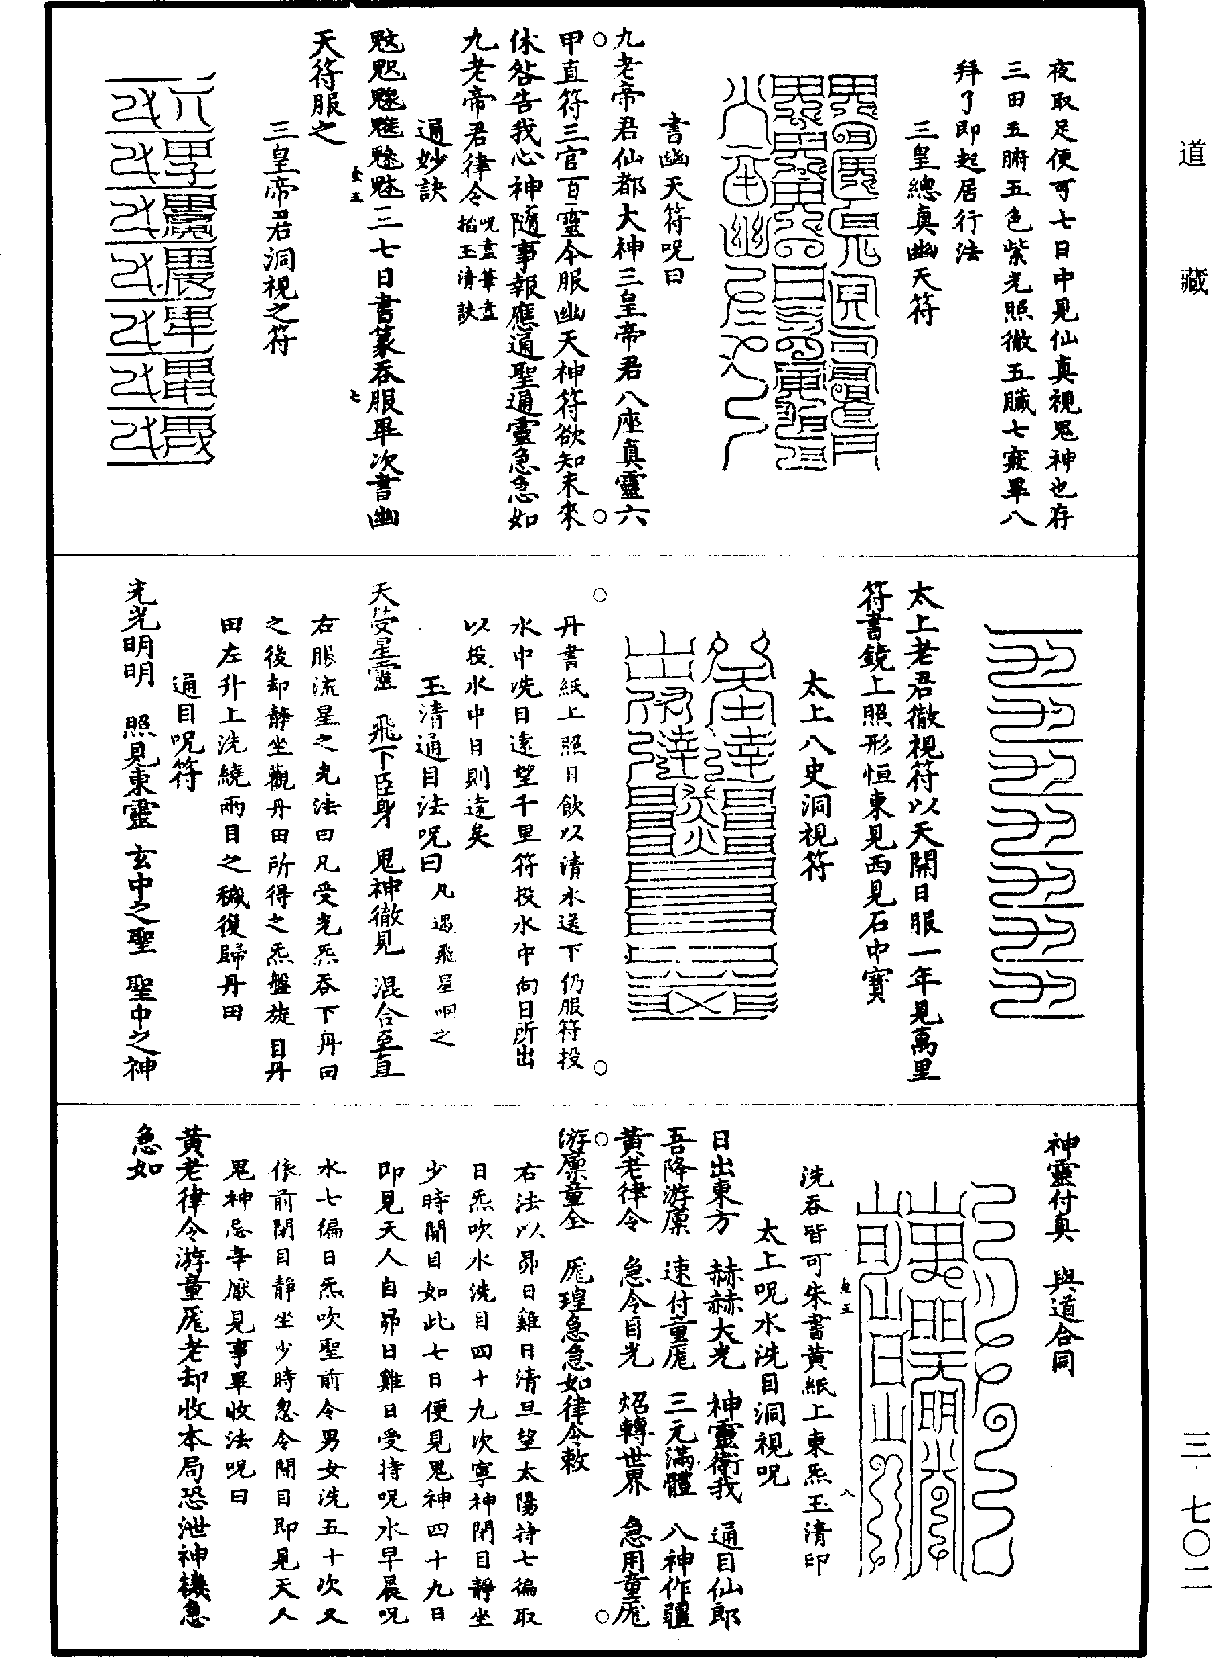 道藏
三·七〇二
夜取足便可七日中見仙真視鬼神也存
三田五腑五色紫光照徹五臟七竅畢八
拜了即起居行法
三皇總真幽天符
書幽天符呪曰
九老帝君仙都大神三皇帝君八座真靈六
甲直符三官百靈今服幽天神符欲知未來
休咎告我心神隨事報應通聖通靈急急如
九老帝君律令呪畫筆畫
掐玉清訣
通妙訣
三七日書篆吞服畢次書幽
天符服之
三皇帝君洞視之符
太上老君徹視符以天開日服一年見萬里
符書鏡上照形恒東見西見石中寶
太上八史洞視符
丹書紙上照日飲以清水送下仍服符投
水中洗目遠望千里符投水中向日所出
以投水中目則遠矣
玉清通目法呪曰凡遇飛星呪之
天荧星靈 飛下臣身 鬼神徹見 混合至真
右服流星之光法曰凡受光炁吞下丹田
之後却靜坐觀丹田所得之炁盤旋自丹
田左升上洗繞兩目之穢復歸丹田
通目呪符
光光明明 照見東靈 玄中之聖 聖中之神
神靈付真 與道合同
洗吞皆可朱書黃紙上東炁玉清印
太上呪水洗目洞視呪
日出東方 赫赫大光 神靈衛我 通目仙郎
吾降游廪 速付童厖 三元滿體 八神作疆
黃老律令 急令目光 炤轉世界 急用童厖
游廪童全 厖瑝急急如律令敕
右法以昴日雞日清旦望太陽持七徧取
日炁吹水洗目四十九次寧神閉目靜坐
少時開目如此七日便見鬼神四十九日
即見天人自昴日雞日受持呪水早晨呪
水七徧日炁吹聖前令男女洗五十次又
依前閉目靜坐少時忽令開目即見天人
鬼神忌葷厭見事畢收法呪曰
黃老律令游童厖老却收本局恐泄神機急
急如